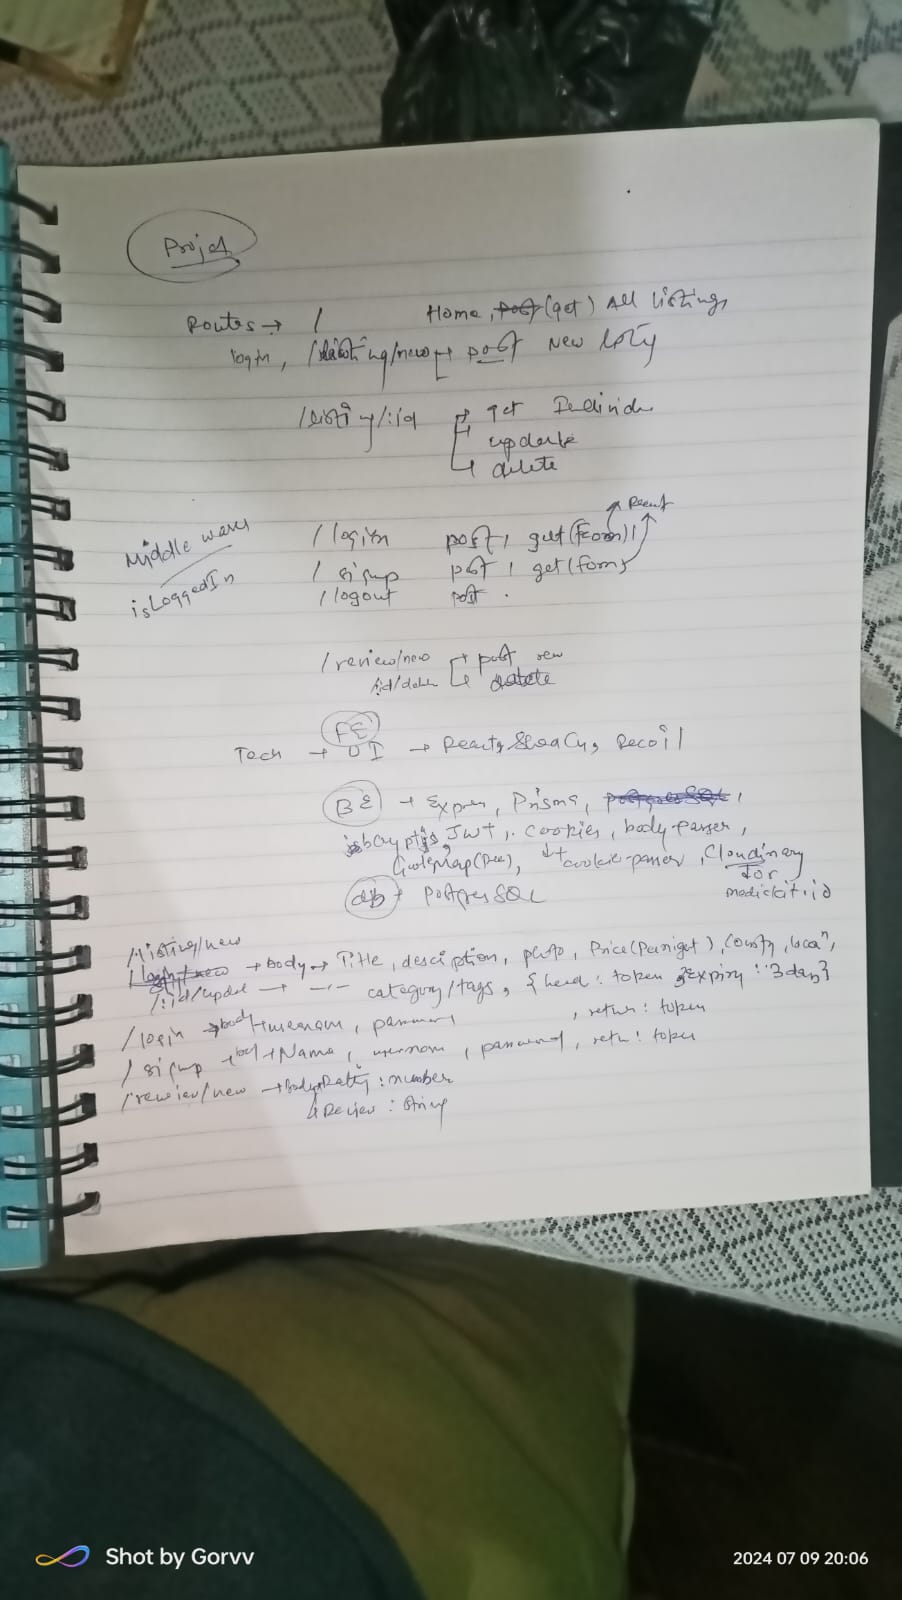 Project
Routes → / Home, post (get) All listings
login, /listing/new → post New
/listing/:id → get
update
delete
Middle wares
isLoggedIn
/login post, get (Form)
/signup post, get (Form)
/logout post
/review/new → post new
:id/delete delete
FE
Tech → UI → React, Recoil
BE → Express, Prisma,
bcryptjs, JWT, cookies, body-parser,
cookie-parser, Cloudinary
for
db → PostgresSQL
/listing/new
→ body → Title, description, photo, Price (Per night), Country,
/:id/update → category/tags, { head: token, Expiry: '3 days}
/login → body → username, password, return: token
/signup → body → Name, username, password, return: token
/review/new → Body → Rating: number
↳ Review: String
Shot by Gorvv
2024 07 09 20:06